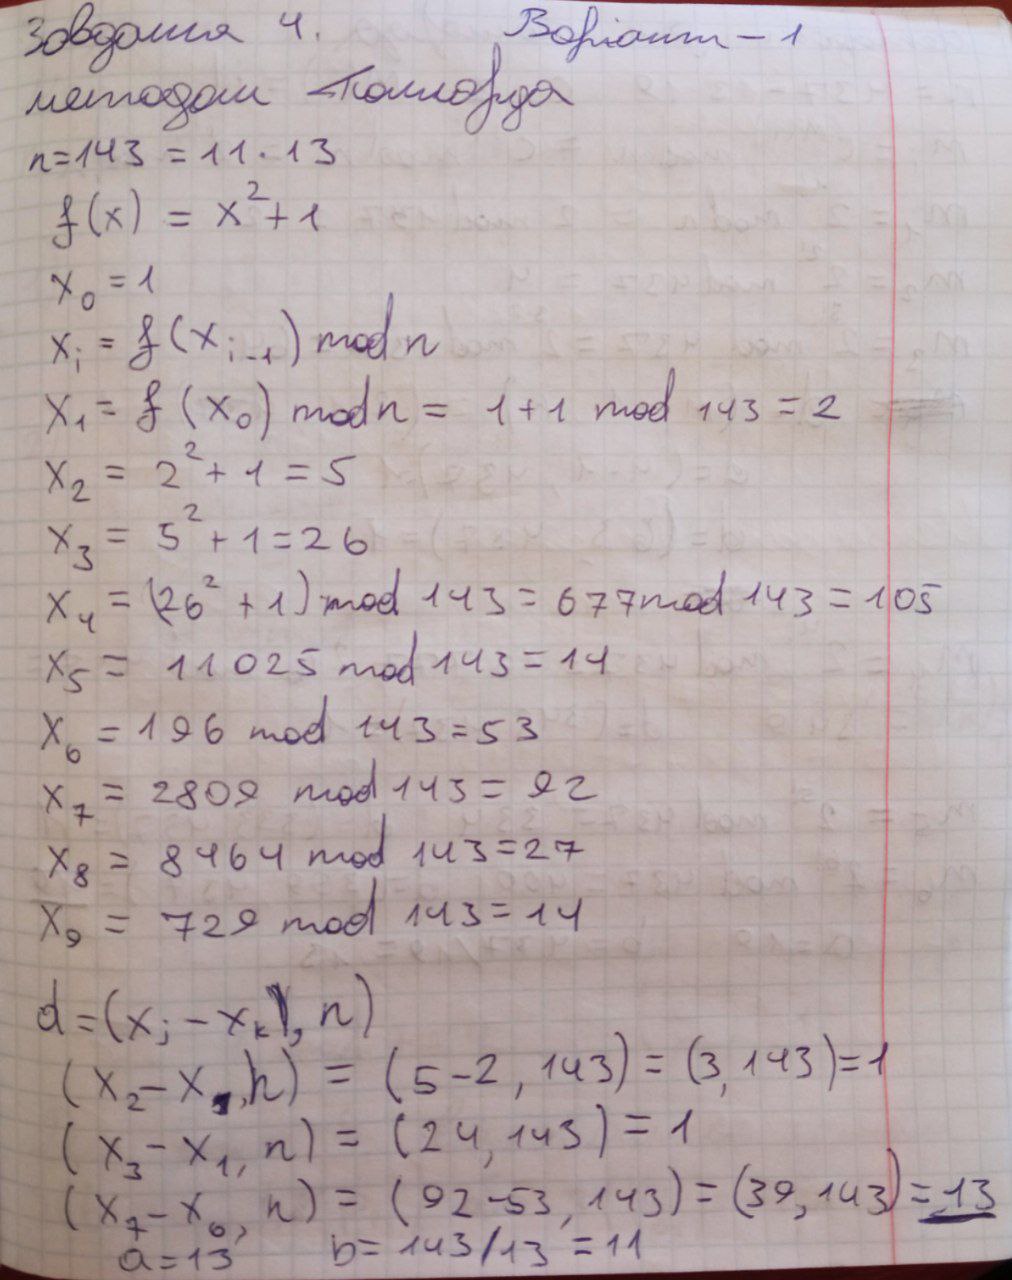 Завдання 4. Варіант - 1
методом Полларда
n=143 = 11·13
f(x) = x²+1
x₀ = 1
xᵢ = f(xᵢ₋₁) mod n
x₁ = f(x₀) mod n = 1+1 mod 143 = 2
x₂ = 2²+1 = 5
x₃ = 5²+1=26
x₄ = (26²+1) mod 143 = 677 mod 143 = 105
x₅ = 11025 mod 143 = 14
x₆ = 196 mod 143 = 53
x₇ = 2809 mod 143 = 92
x₈ = 8464 mod 143 = 27
x₉ = 729 mod 143 = 14
d = (xⱼ - xₖ, n)
(x₂ - x₁, n) = (5-2, 143) = (3, 143) = 1
(x₃ - x₁, n) = (24, 143) = 1
(x₇ - x₆, n) = (92-53, 143) = (39, 143) = 13
a = 13 b = 143/13 = 11